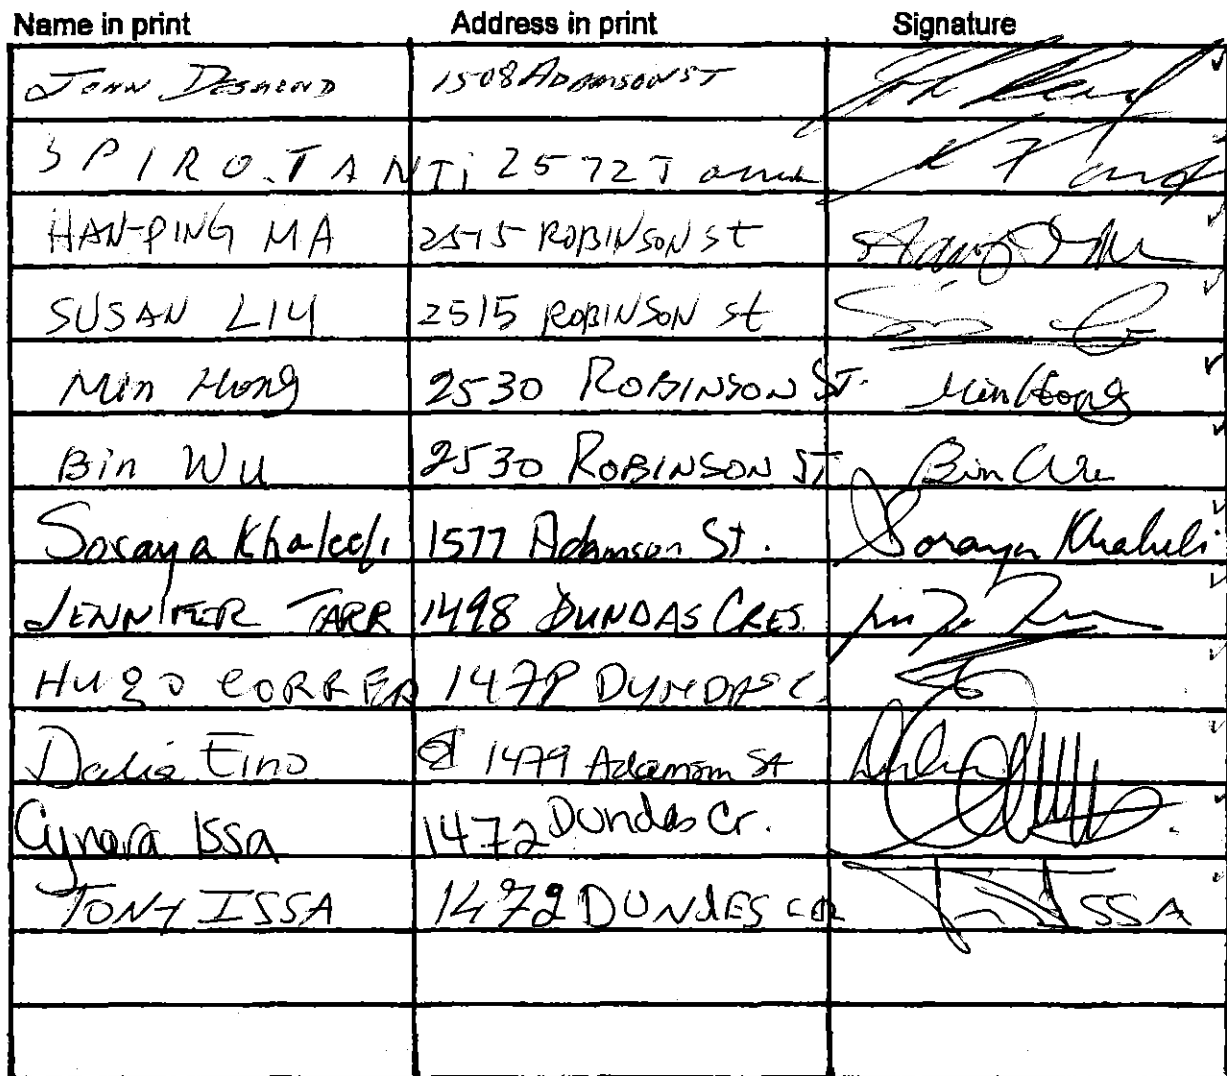 Name in print Address in print Signature
JOHN DESMOND 1508 ADAMSON ST
SPIRO.TANTi 2572
HAN-PING MA 2515 ROBINSON St
SUSAN LIU 2515 ROBINSON St
Min Hong 2530 ROBINSON ST. Min Hong
Bin WU 2530 ROBINSON ST Bin Wu
Soraya Khaledi 1577 Adamson St. Soraya Khaledi
JENNIFER TARR 1498 DUNDAS CRES.
HUGO CORREA 1478 DUNDAS C.
Dalia Eino 1479 Adamson St
Cynara Issa 1472 Dundas Cr.
TONY ISSA 1472 DUNDES CR ISSA